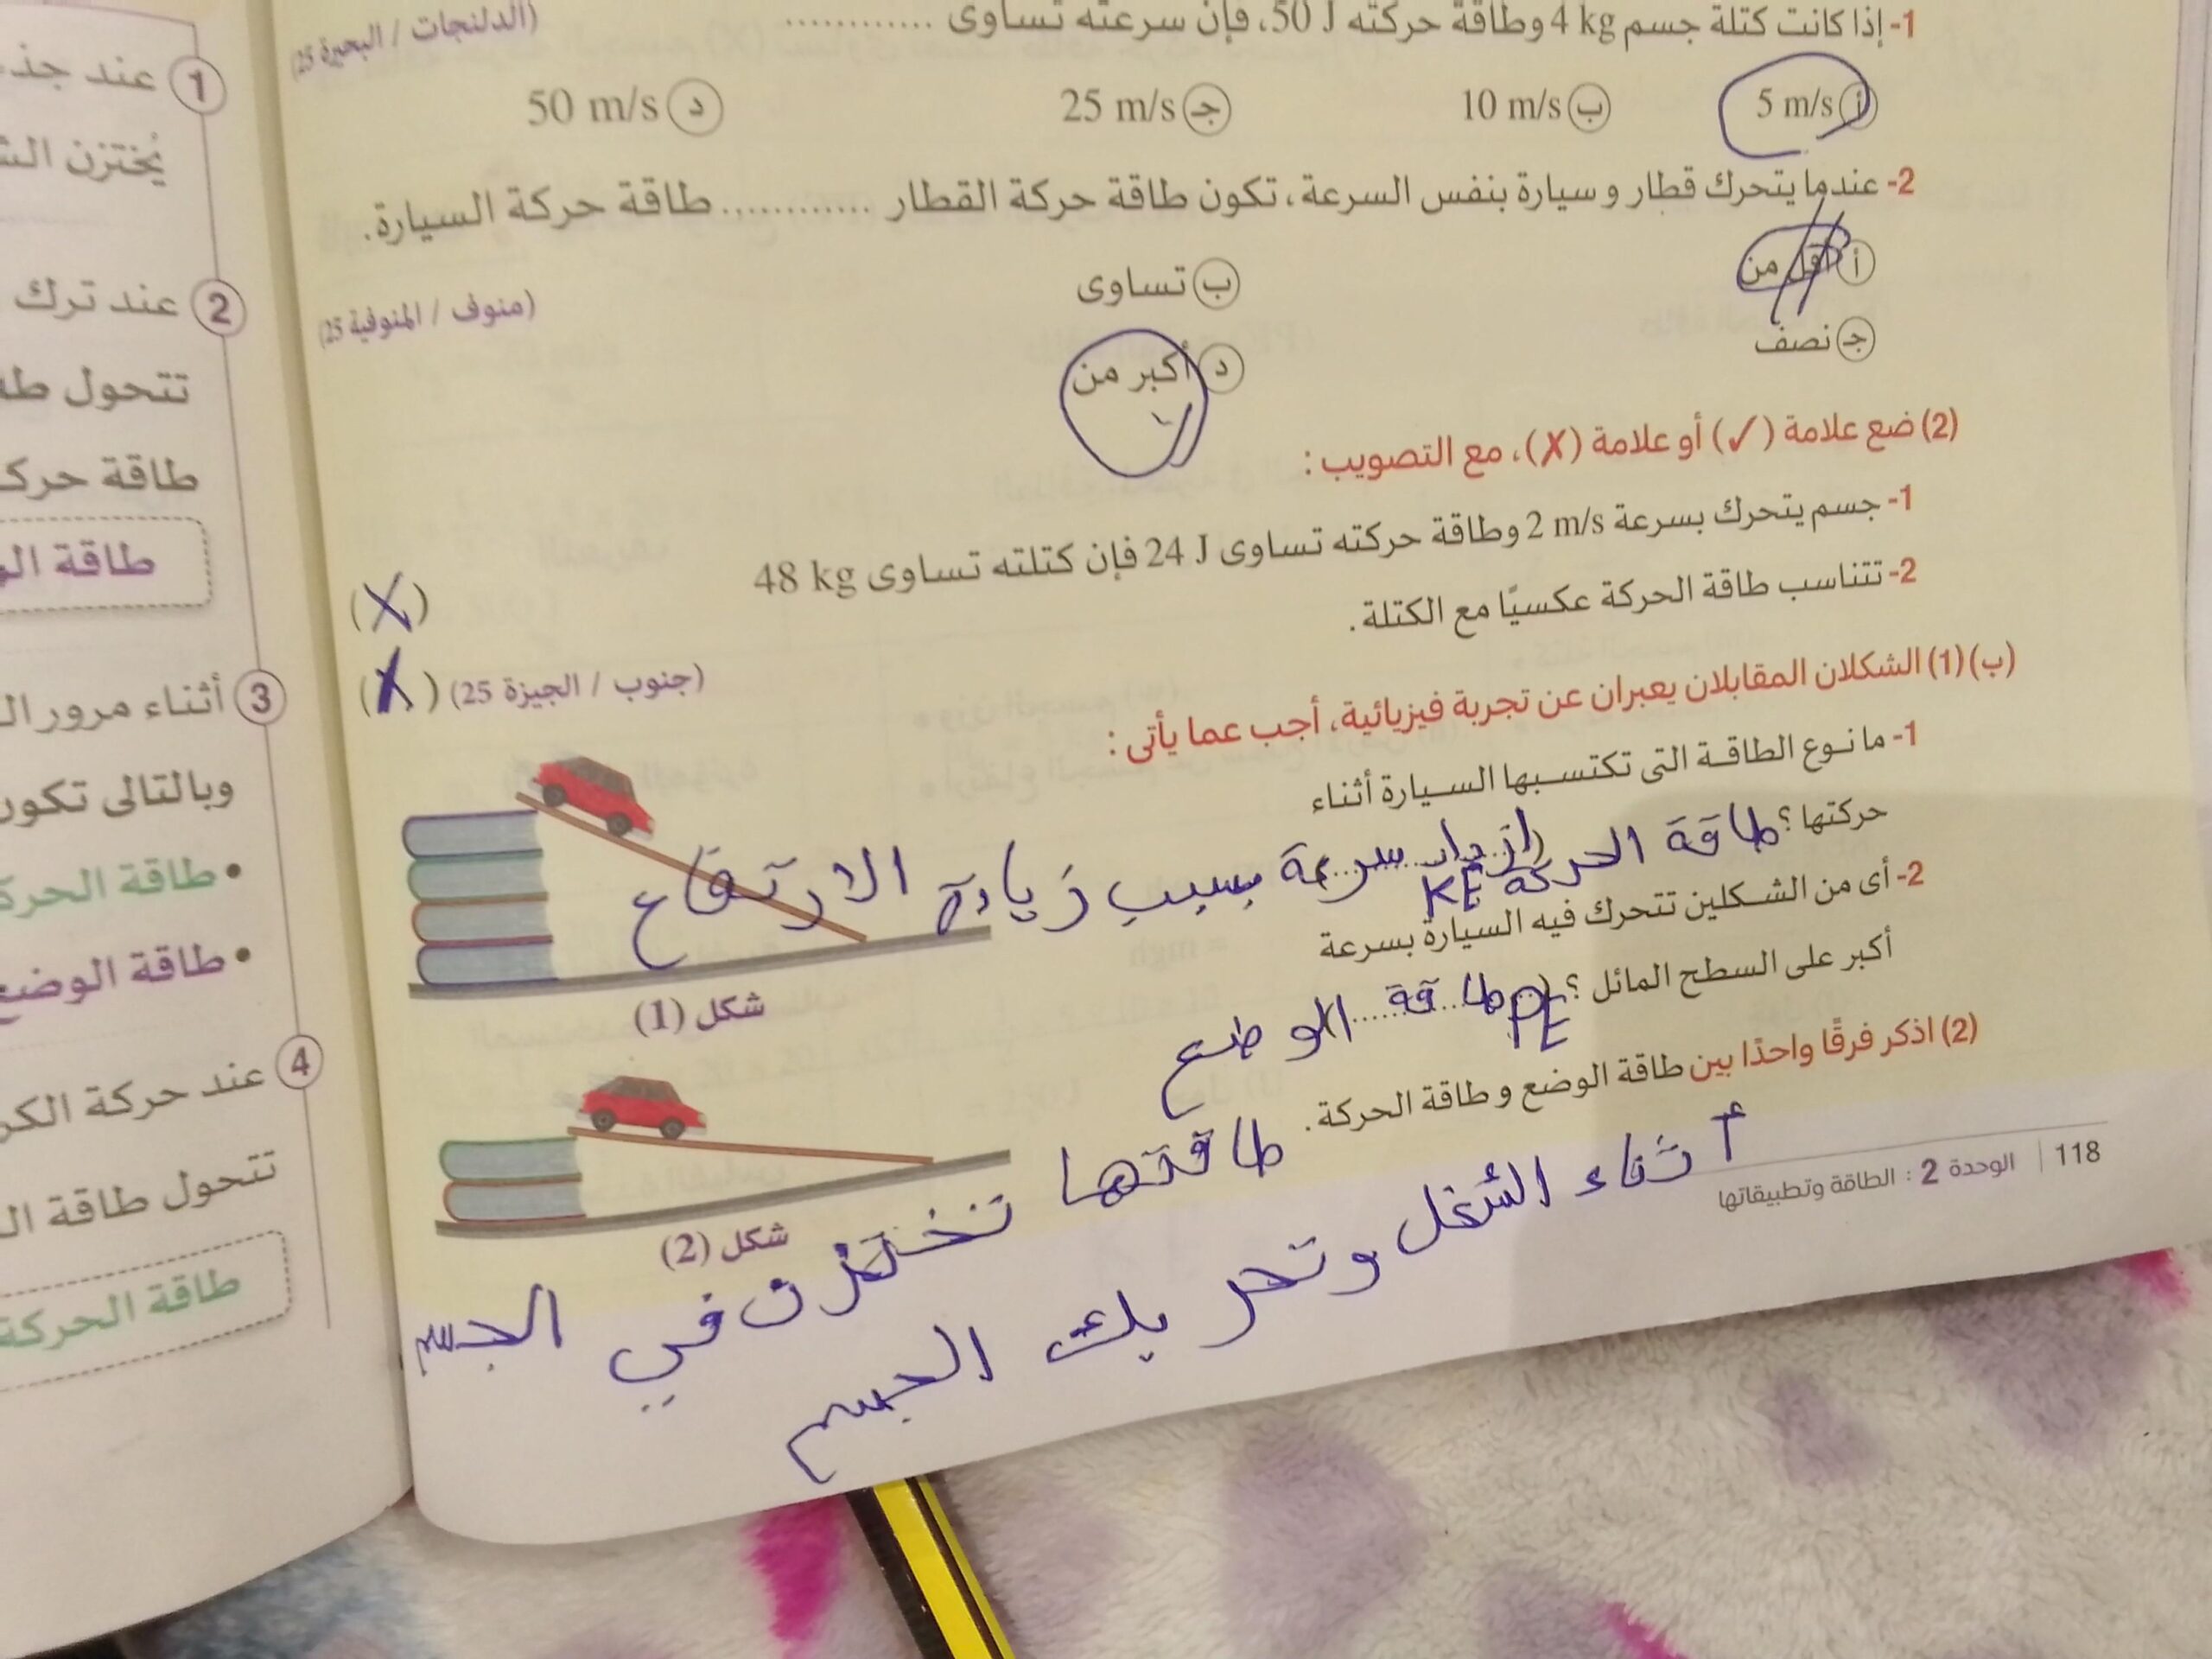 1- إذا كانت كتلة جسم 4 kg وطاقة حركته 50 J، فإن سرعته تساوى ............ (الدلنجات / البحيرة 25)
أ 5 m/s ب 10 m/s جـ 25 m/s د 50 m/s
2- عندما يتحرك قطار و سيارة بنفس السرعة، تكون طاقة حركة القطار ............ طاقة حركة السيارة.
أ أقل من ب تساوى (منوف / المنوفية 25)
جـ نصف د أكبر من
(2) ضع علامة (✓) أو علامة (✗)، مع التصويب :
1- جسم يتحرك بسرعة 2 m/s وطاقة حركته تساوى 24 J فإن كتلته تساوى 48 kg (X)
2- تتناسب طاقة الحركة عكسيًا مع الكتلة. (جنوب / الجيزة 25) (X)
(ب) (1) الشكلان المقابلان يعبران عن تجربة فيزيائية، أجب عما يأتى :
1- ما نوع الطاقة التى تكتسبها السيارة أثناء
حركتها ؟ طاقة الحركة KE
ازداد سرعة بسبب زيادة الارتفاع
2- أى من الشكلين تتحرك فيه السيارة بسرعة
أكبر على السطح المائل ؟
شكل (1)
PE طاقة الوضع
(2) اذكر فرقًا واحدًا بين طاقة الوضع و طاقة الحركة.
طاقتها تختزن في الجسم
أثناء الشغل وتحريك الجسم
شكل (2)
118 | الوحدة 2 : الطاقة وتطبيقاتها
1 عند جذ
يُختزن الش
2 عند ترك
تتحول طا
طاقة حركـ
طاقة الو
3 أثناء مرور الـ
وبالتالى تكون
• طاقة الحركـ
• طاقة الوضع
4 عند حركة الكر
تتحول طاقة الـ
طاقة الحركة